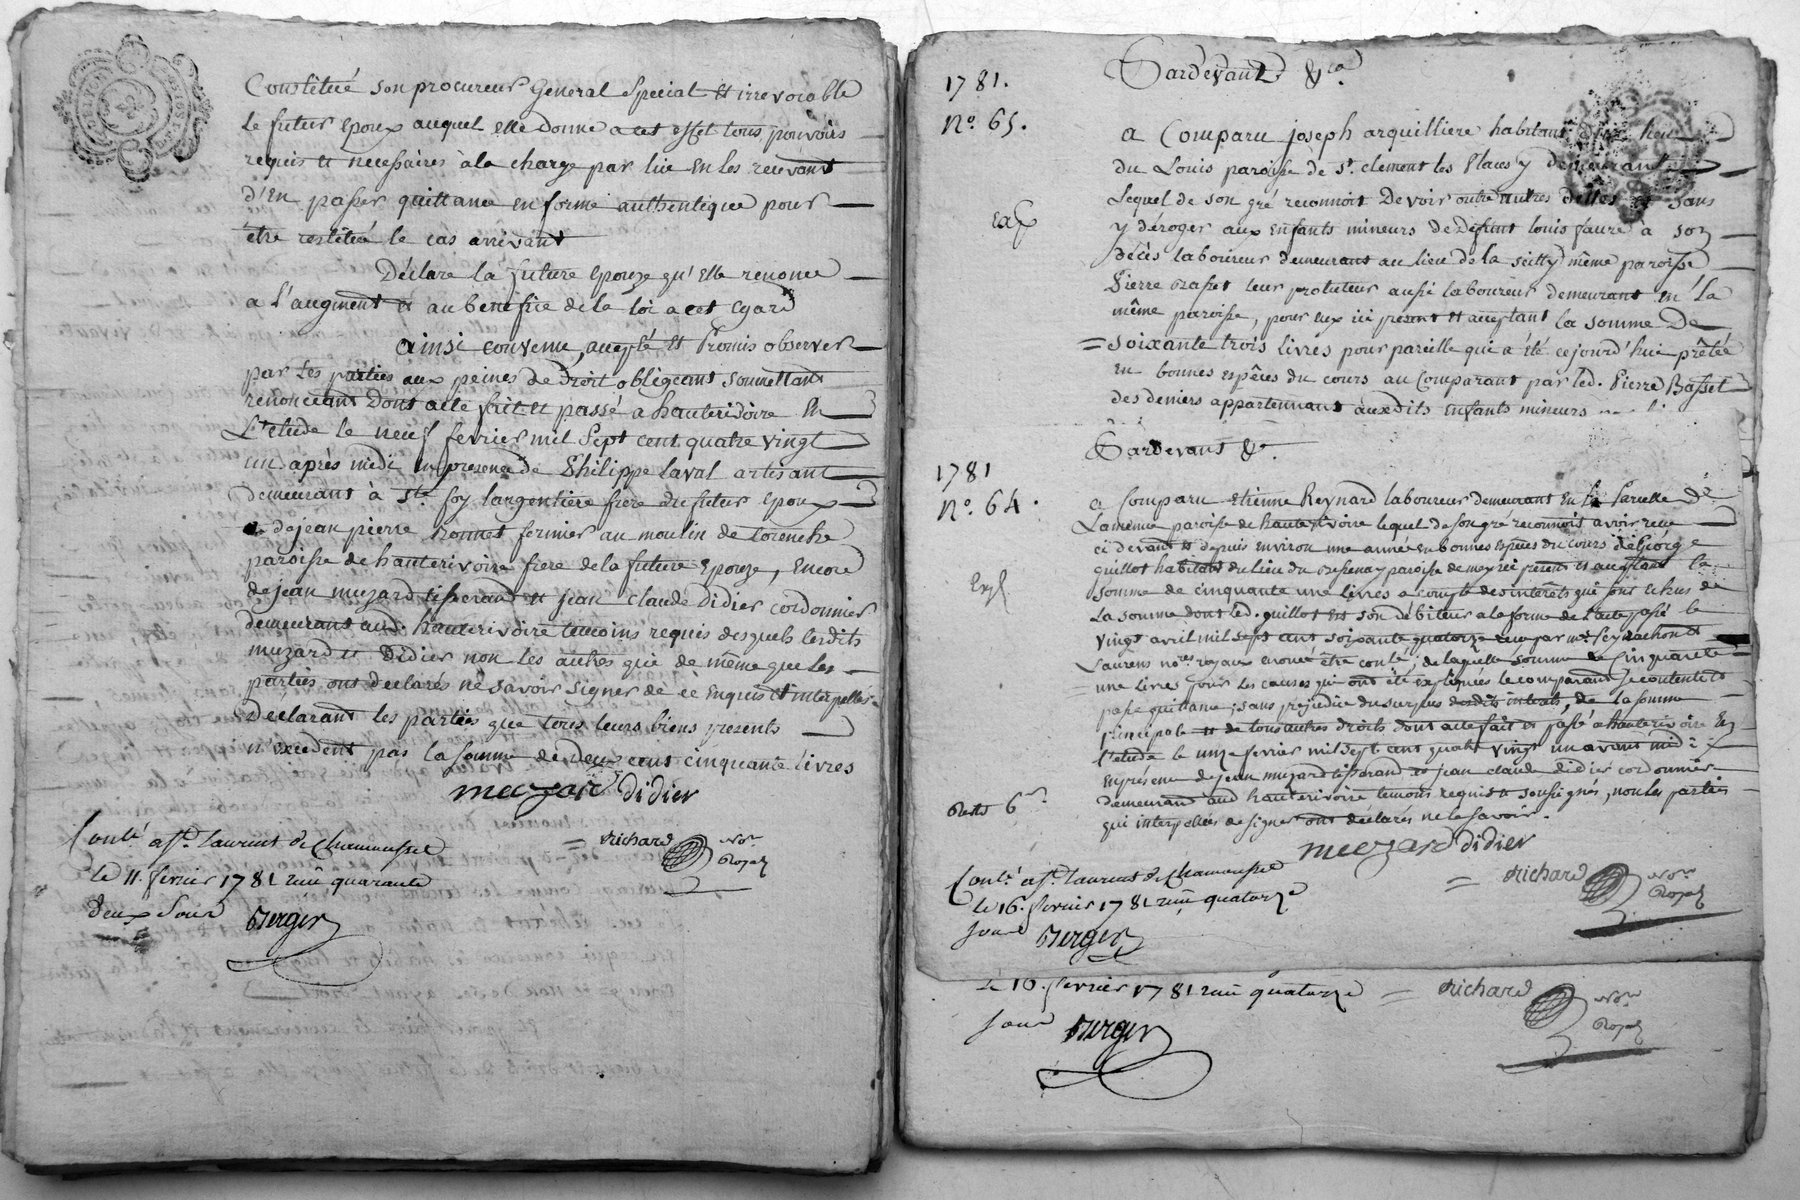 Constitué son procureur General Special et irrevocable
le futur epoux auquel elle donne a cet effet tous pouvoirs
requis et necessaires à la charge par lui en les recevant
d'En passer quittance en forme authentique pour
être restitué le cas arrivant
Déclare la future Epouze qu'Elle renonce
a l'augment et au benefice de la loi a cet egard
ainsi convenu, accepté et Promis observer
par les parties aux peines de Droit obligeant soumettant
renonceant Dont acte fait et passé a hauterivoire En
L'etude le neuf fevrier mil Sept cent quatre vingt
un après midi en presence de Philippe Laval artisant
Demeurant à Ste foy largentière frere du futur Epoux
de jean pierre fermier au moulin de
paroisse de hauterivoire frere de la future Epouze, Encore
de jean muzard tisserand et jean claude Didier cordonnier
demeurants aud. hauterivoire temoins requis desquels lesdits
muzard et Didier non les autres qui de même que les
parties ont declarés ne savoir signer de ce Enquis et interpellés
Déclarant les parties que tous leurs biens presents
n'excedent pas la somme de deux cent cinquante livres
muzard didier
Conlé à St. Laurent de Chamousset
le 11. fevrier 1781 reçu quarante
deux Sous Berger
= Richard Nore
Royal
1781.
No. 65.
Pardevant &ca
a Comparu joseph arquilliere habitant lieu
du Louis paroisse de St. clement les Places y demeurant
Lequel de son gré reconnoit Devoir outre autres Dettes et sans
y déroger aux Enfants mineurs de Defunt louis faure a son
Décès laboureur demeurant au lieu de la même paroisse
Pierre Basset leur protuteur aussi laboureur demeurant en la
même paroisse, pour eux ici present et acceptant la somme De
= soixante trois livres pour pareille qui a été cejourd'hui prêtée
en bonnes espêces du cours au Comparant par led. Pierre Basset
des deniers appartennans auxdits enfants mineurs
1781
No. 64.
Exp
Pardevant &a.
a Comparu Etienne Reynard laboureur demeurant En la Parcelle de
Lamenue paroisse de hauterivoire lequel de son gré reconnoit avoir reçu
ci devant et depuis environ une année en bonnes espèces du cours de George
guillot habitant du lieu du paroisse de meyrié present et acceptant la
somme de cinquante une livres a compte des interets qui sont echus de
La somme dont led. guillot est son debiteur a la forme de l'acte passé le
vingt avril mil sept cent soixante quatorze reçu par me. Peyrachon et
Laurens nores. royaux enoncé être conlé, de laquelle somme de Cinquante
une livres pour les causes qui ont été expliquées le comparant se contente et
passe quittance; sans prejudice du surplus desdits interets, de la somme
Principale et de tous autres droits dont acte fait et passé a hauterivoire En
l'etude le unze fevrier mil sept cent quatre vingt un avant midi
En presence de jean muzard tisserand et jean claude didier cordonnier
demeurants aud hauterivoire temoins requis et soussignés, non les parties
qui interpellées de signer ont declarés ne le savoir.
muzard didier
Conlé à St. Laurent de Chamousset
le 16. fevrier 1781 reçu quatorze
sous Berger
= Richard Nore
Royal
le 16. fevrier 1781 reçu quatorze = Richard Nore
sous Berger Royal